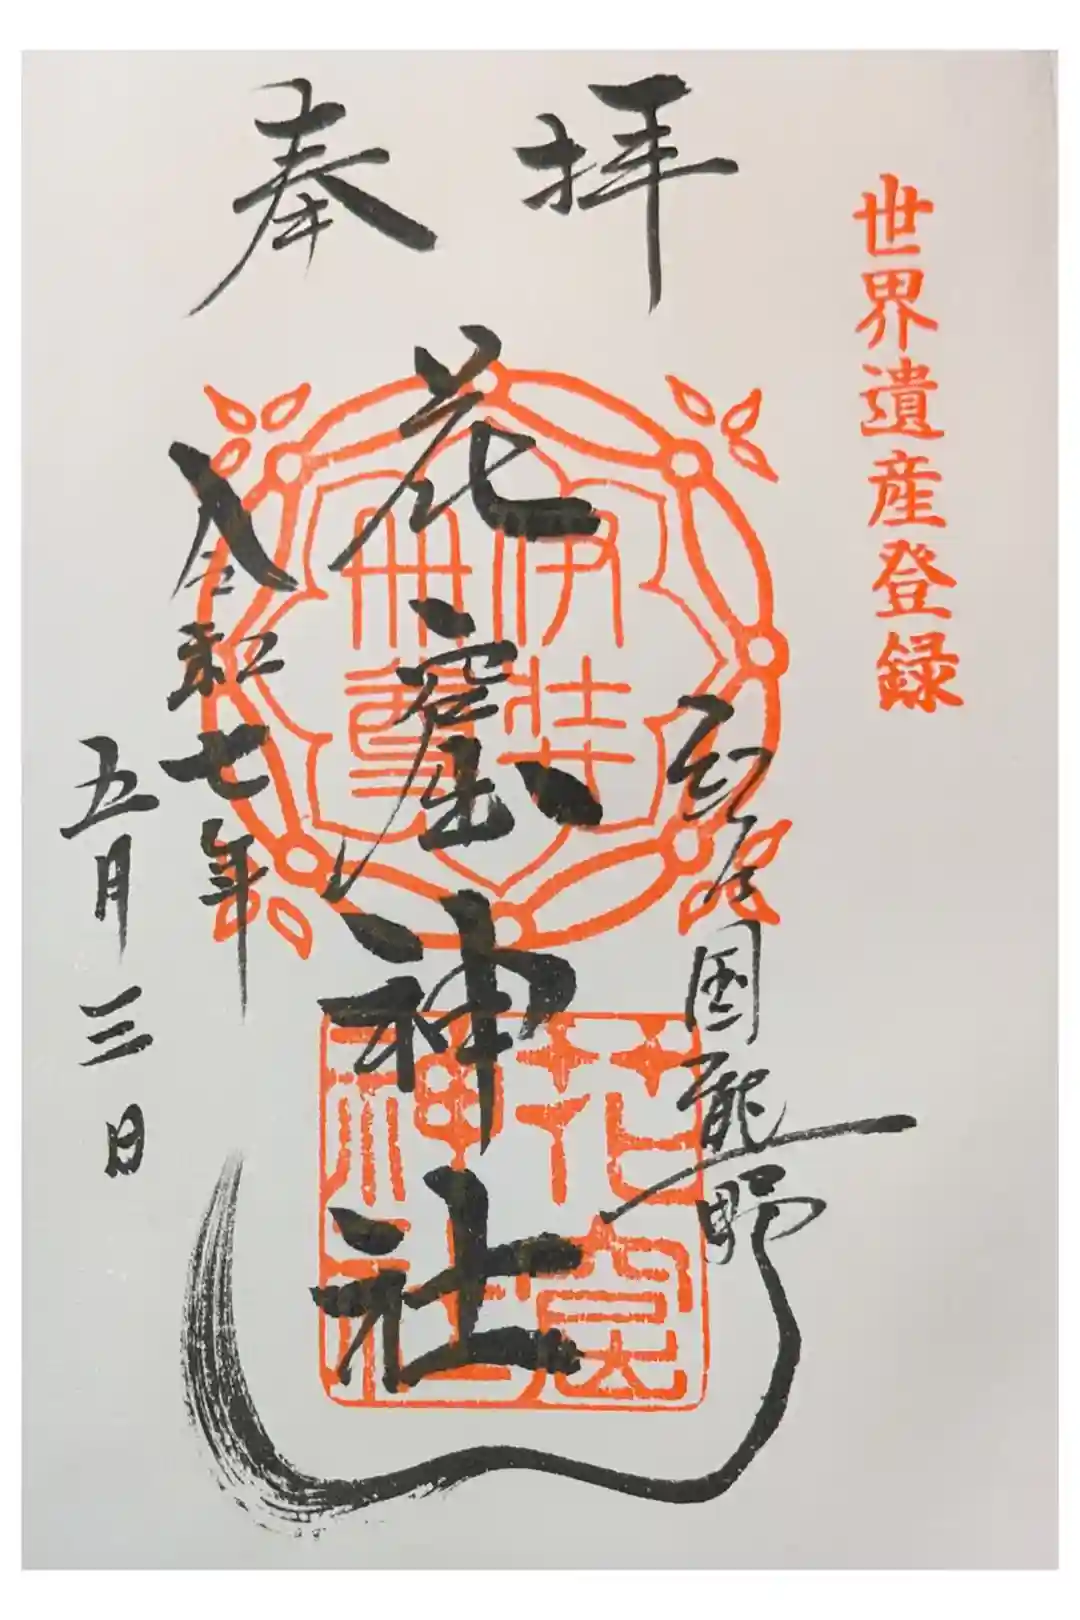 奉拝
世界遺産登録
国熊野
花窟神社
令和七年
五月三日
伊弉
冊尊
花窟
神社